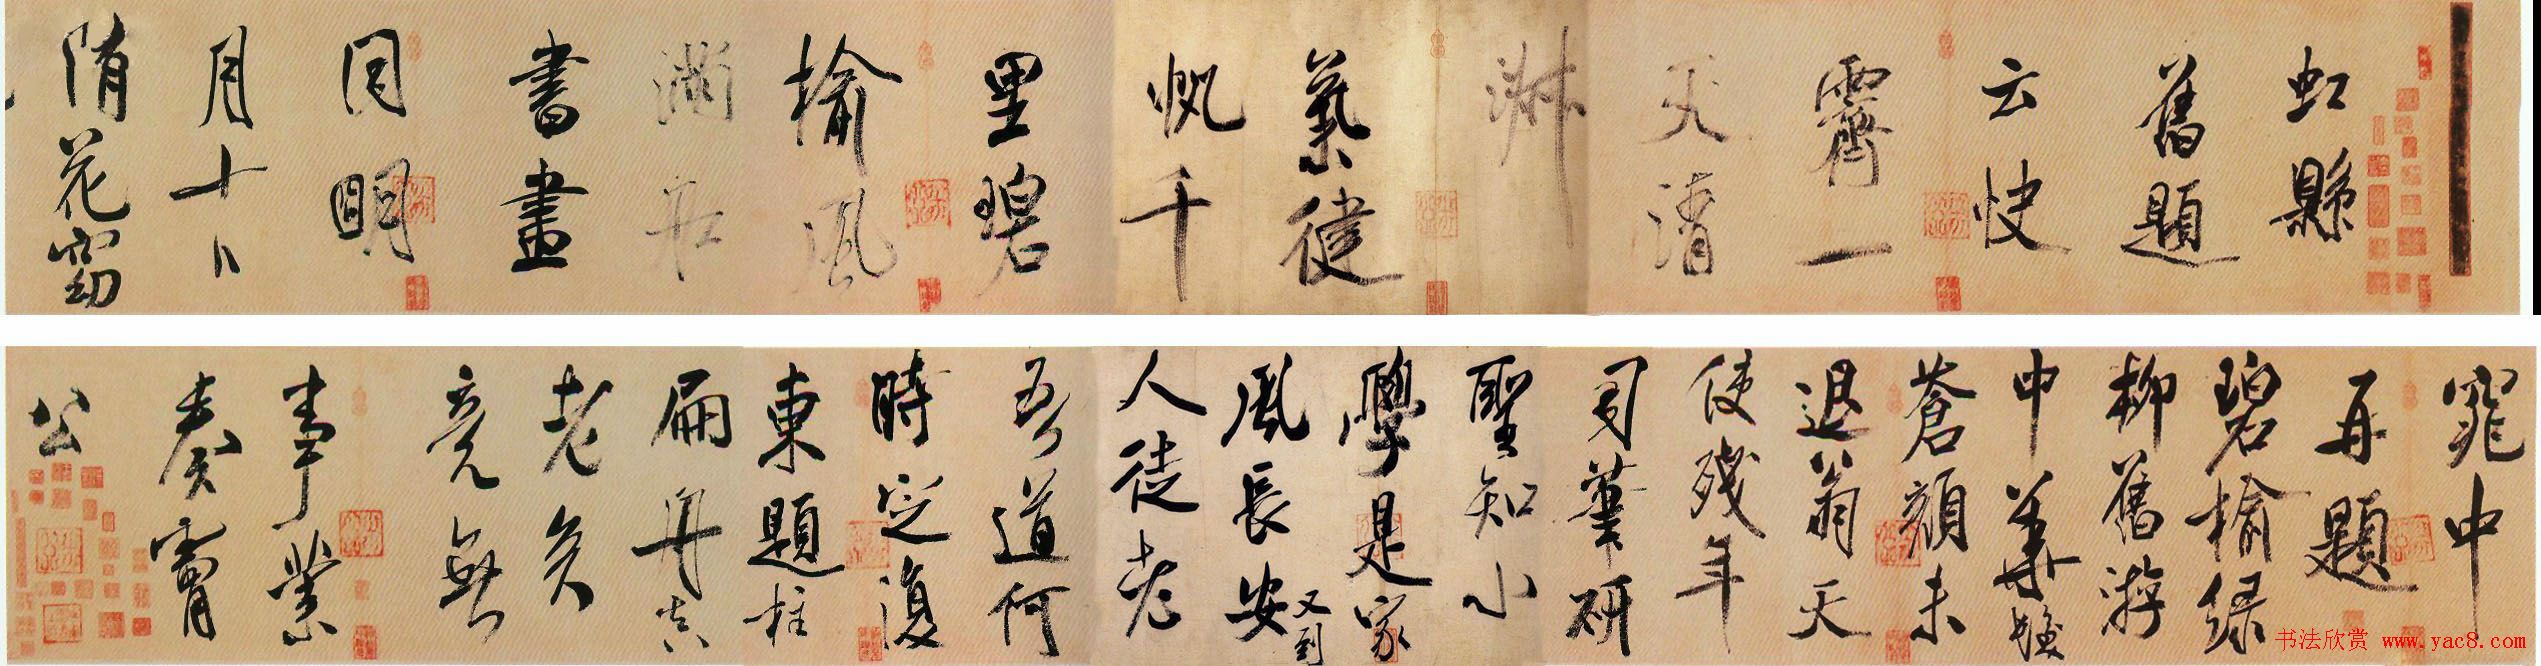 虹縣
舊題
云快
霽一
天清
淑
氣健
帆千
里碧
榆風
滿船
書畫
同明
月十日
隋花窈
窕中
再題
碧榆綠
柳舊游
中華髮
蒼顏未
退翁天
使殘年
司筆研
聖知小
學是家
風長安又到
人徒老
吾道何
時定復
東題柱
扁舟真
老矣
竟無
事業
奏膚
公
书法欣赏 www.yac8.com